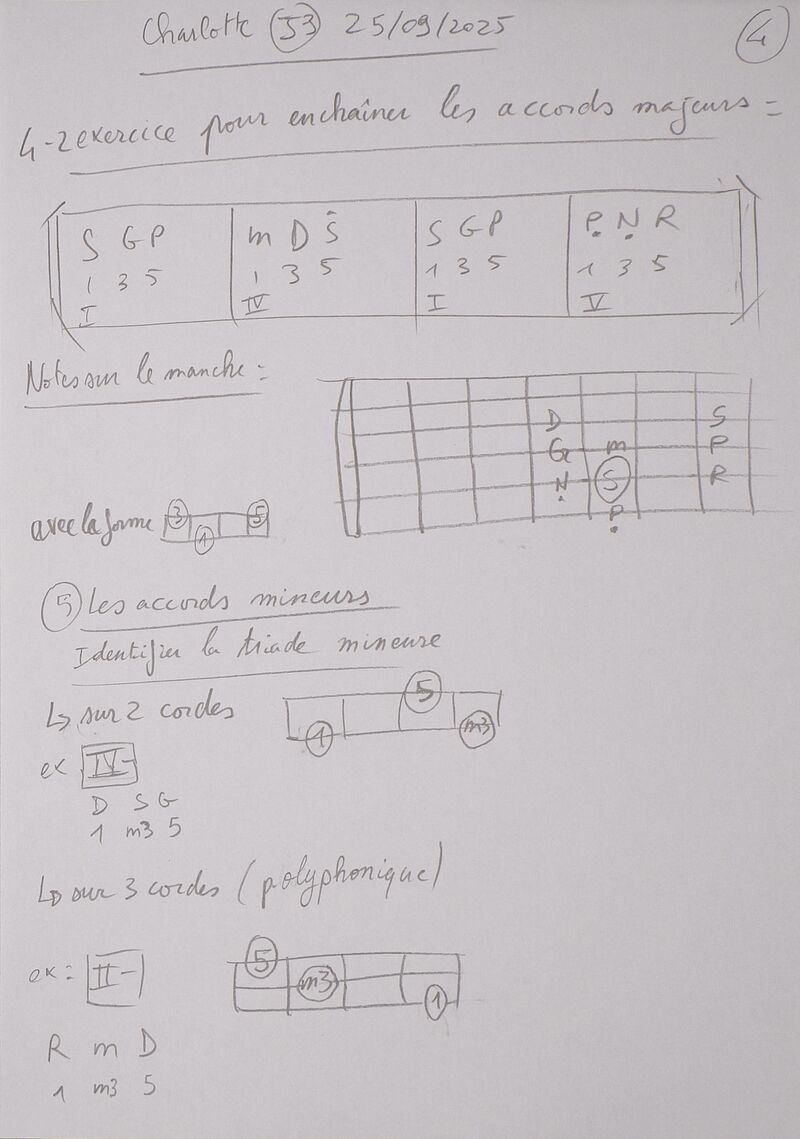 Charlotte (53) 25/09/2025
4
4-2 exercice pour enchaîner les accords majeurs =
S G P m D Ṡ S G P P̣ Ṇ R
1 3 5 1 3 5 1 3 5 1 3 5
I IV I V
Notes sur le manche =
D S
G m P
Ṇ S R
P̣
avec la forme 3 1 5
5 Les accords mineurs
Identifier la triade mineure
↳ sur 2 cordes
5
1 m3
ex IV-
D S G
1 m3 5
↳ sur 3 cordes (polyphonique)
ex = II-
5
m3
1
R m D
1 m3 5